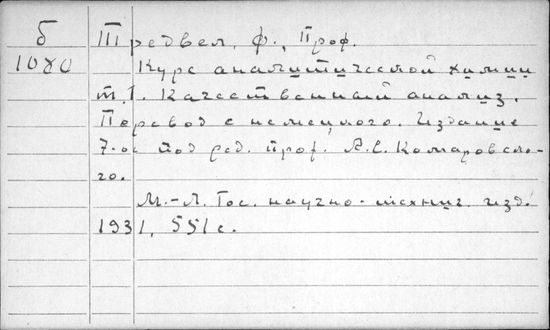 б Тредвел, Ф., Проф.
1080 Курс аналитической химии
т.I. Качественный анализ.
Перевод с немецкого. Издание
7-ое под ред. проф. А.С. Комаровско-
го.
М.-Л. Гос. научно-технич. изд.
1931, 551 с.